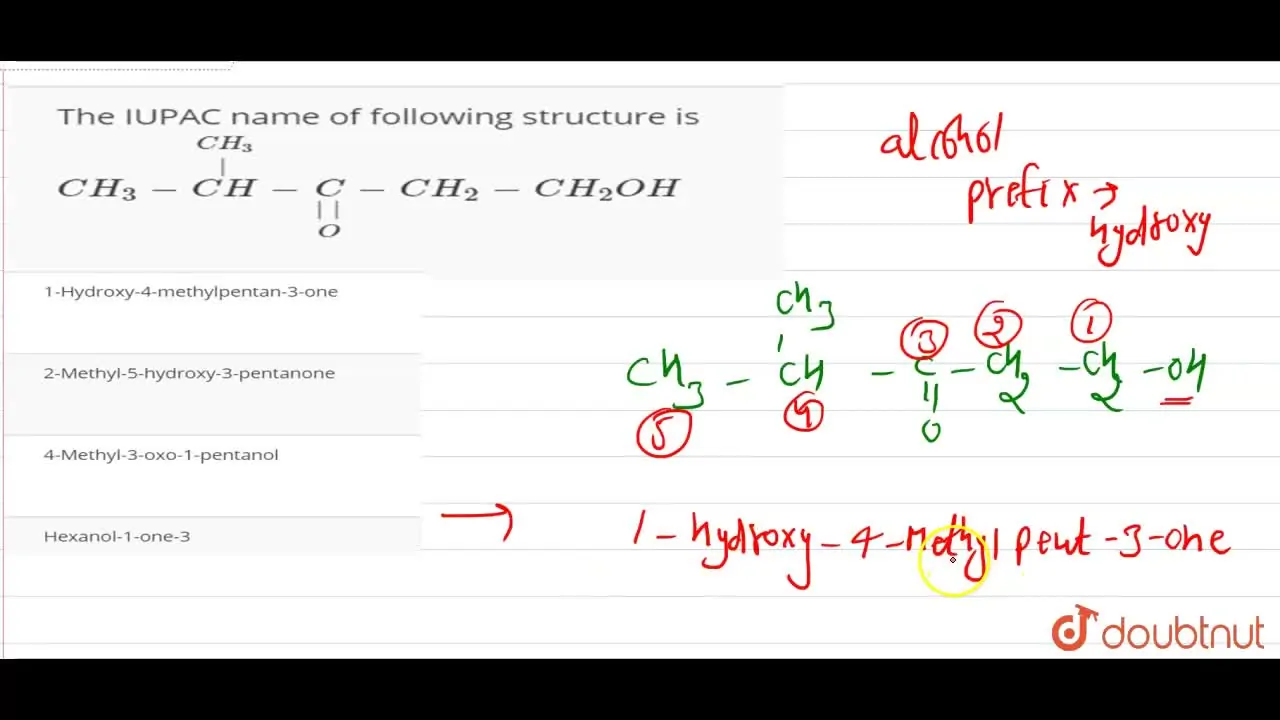 The IUPAC name of following structure is
CH₃
|
CH₃ – CH – C – CH₂ – CH₂OH
||
O
1-Hydroxy-4-methylpentan-3-one
2-Methyl-5-hydroxy-3-pentanone
4-Methyl-3-oxo-1-pentanol
Hexanol-1-one-3
alcohol
prefix →
hydroxy
CH₃
3 2 1
CH₃ – CH – C – CH₂ – CH₂ – OH
||
5 4 O
→ 1 – hydroxy – 4 – Methyl pent -3-one
doubtnut